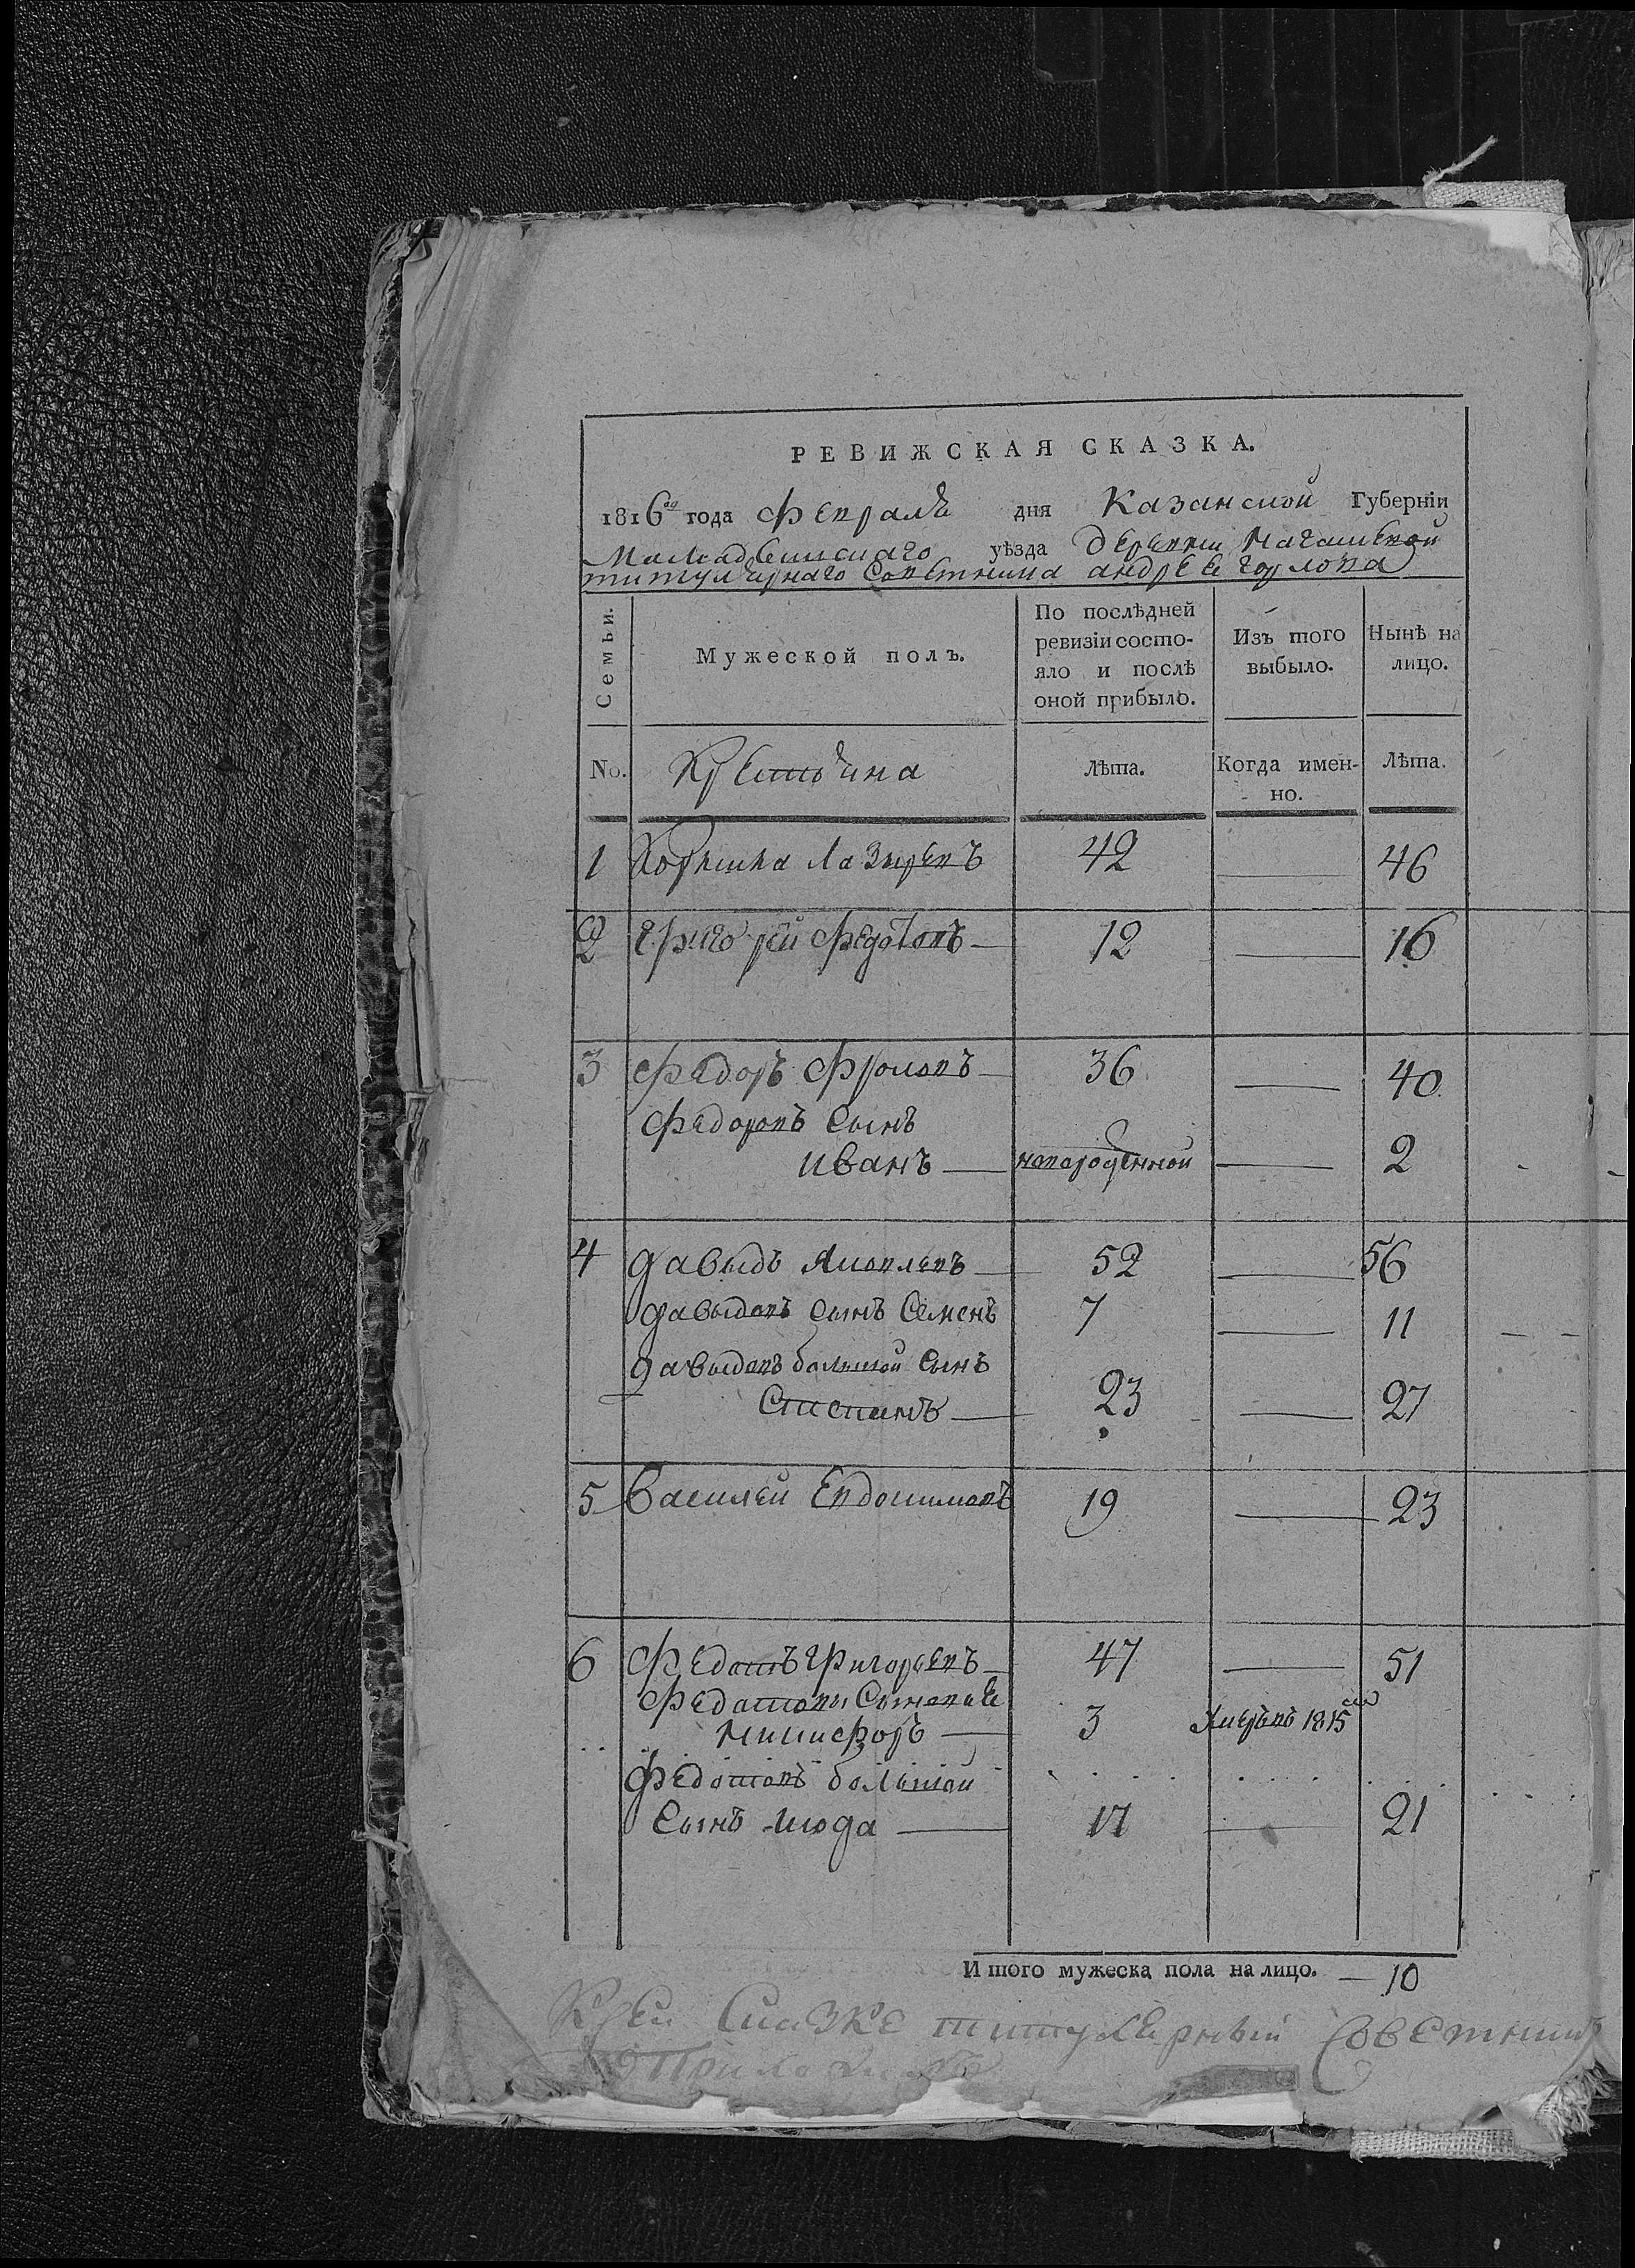 РЕВИЖСКАЯ СКАЗКА.
1816го года Февраля дня Казанской Губерніи
Мамадышскаго уѣзда деревни
титулярнаго Советника андрея горлова
Семьи.
Мужеской полъ.
По послѣдней ревизіи состояло и послѣ оной прибыло.
Изъ того выбыло.
Нынѣ на лицо.
No. Крестьяна лѣта. Когда именно. Лѣта.
1 Лазыревъ 42 — 46
2 Григорей Федотовъ — 12 — 16
3 Федоръ Фроловъ — 36 — 40
Федоровъ Сынъ
иванъ — новарожденной — 2
4 давыдъ Яковлевъ — 52 — 56
давыдовъ Сынъ Семенъ 7 — 11
давыдовъ большой Сынъ
Степанъ — 23 — 27
5 Василей Евдокимовъ 19 — 23
6 Федотъ Григорьевъ — 47 — 51
Федотовы Сыновья
Никифоръ — 3 Умеръ въ 1815
Федотовъ большой
Сынъ Июда — 17 — 21
И того мужеска пола на лицо. — 10
К сей Сказке титулярный Советникъ
приложилъ